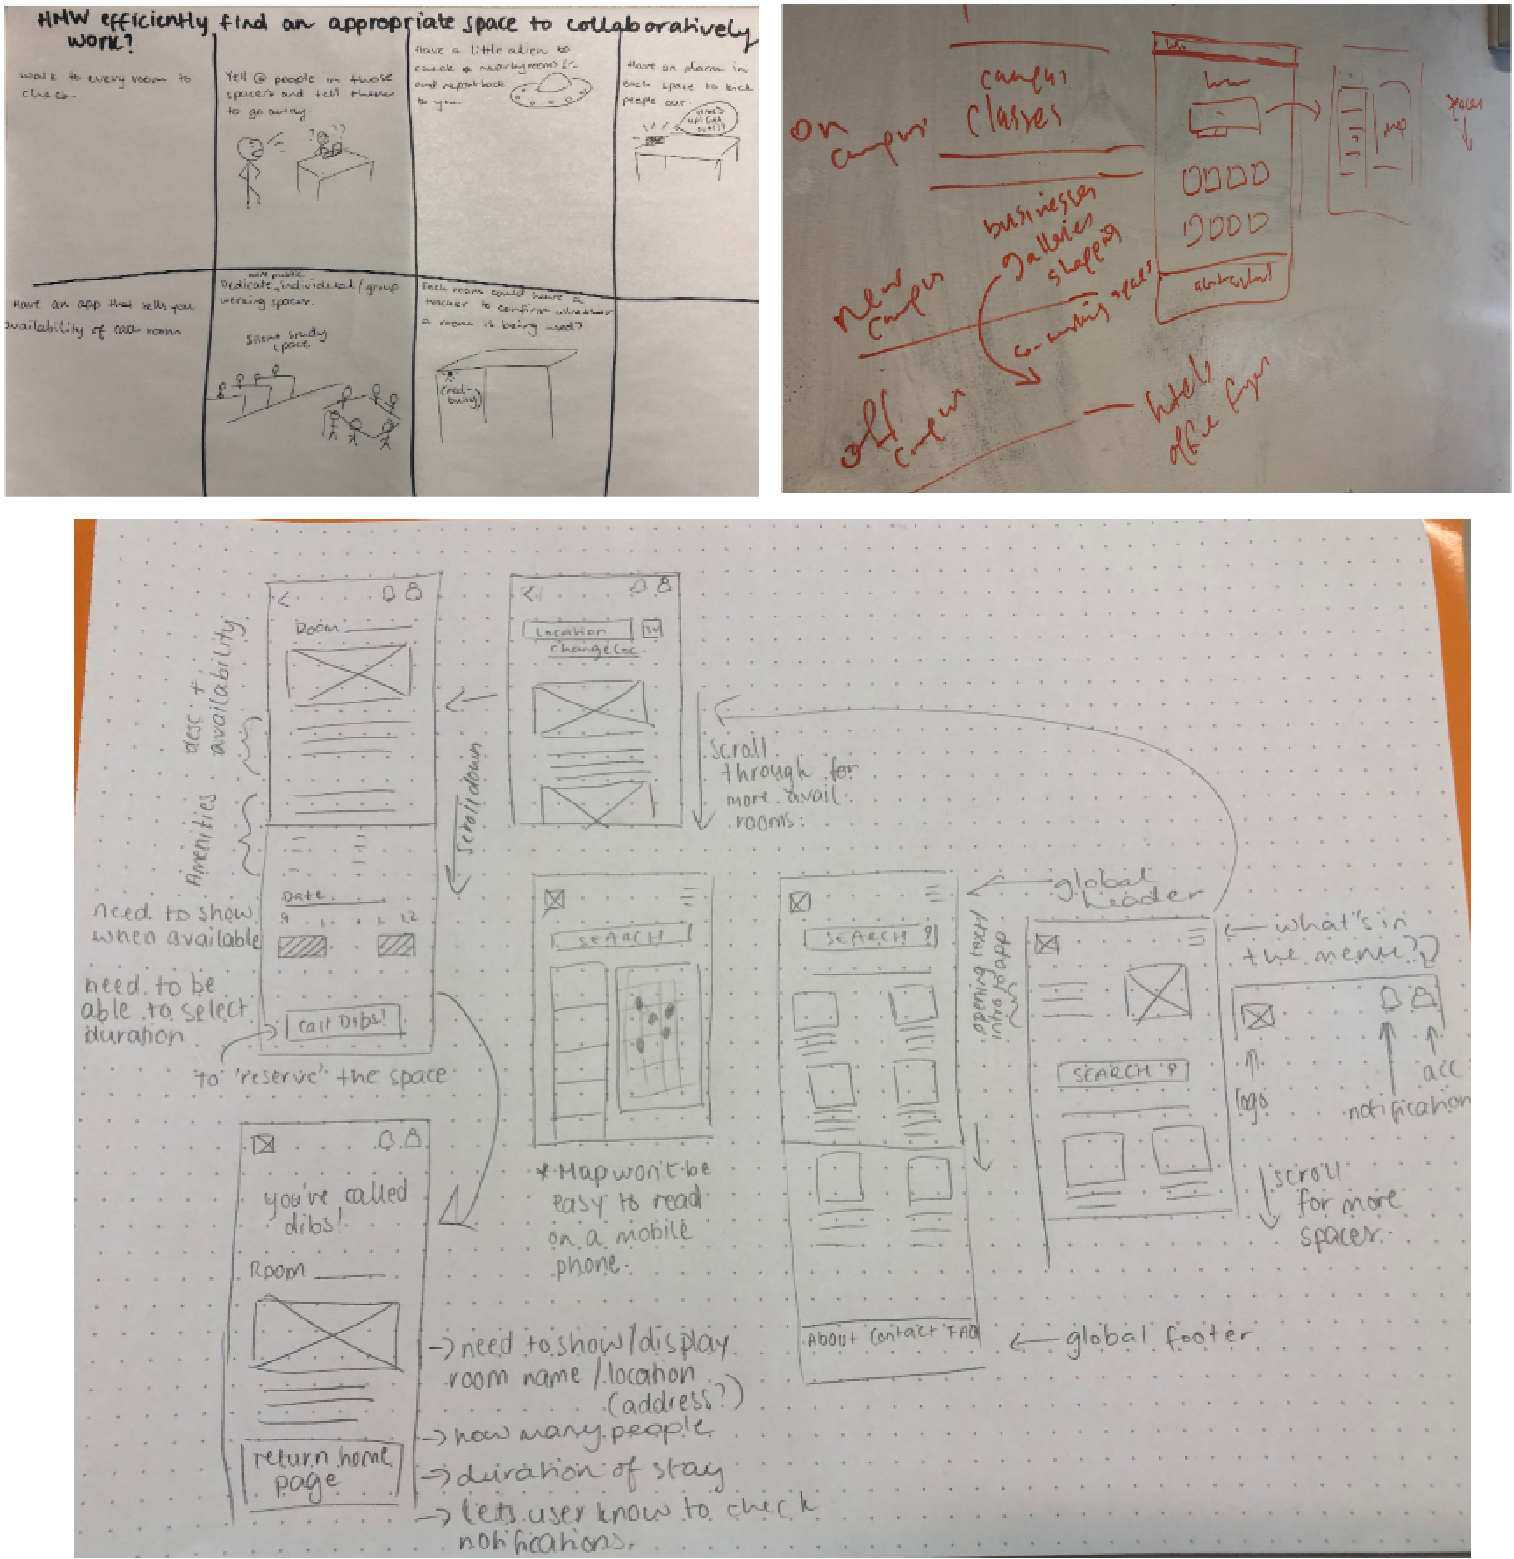 HMW efficiently find an appropriate space to collaboratively
work?
walk to every room to
check.
Yell @ people in those
spaces and tell them
to go away
Have a little alien to
check nearby rooms
and report back
to you.
Have an alarm in
each space to kick
people out.
Have an app that tells you
availability of each room
more public
Dedicate individual/group
working spaces.
Silent study
space
Each room could have a
tracker to confirm whether
a room is being used?
on
campus
campus
classes
near
campus
businesses
galleries
shopping
co-working spaces
off
campus
hotels
office
map
spaces
desc +
availability
Amenities
Room
Date
9
12
Call Dibs!
need to show
when available
need to be
able to select
duration
to 'reserve' the space
scroll down
Location
change loc.
scroll
through for
more avail.
rooms.
SEARCH
* Map won't be
easy to read
on a mobile
phone.
SEARCH
global
header
About Contact FAQ
global footer
SEARCH
what's in
the menu??
logo
acc
notification
scroll
for more
spaces.
you've called
dibs!
Room
return home
page
→ need to show/display
room name/location
(address?)
→ how many people
→ duration of stay
→ lets user know to check
notifications.